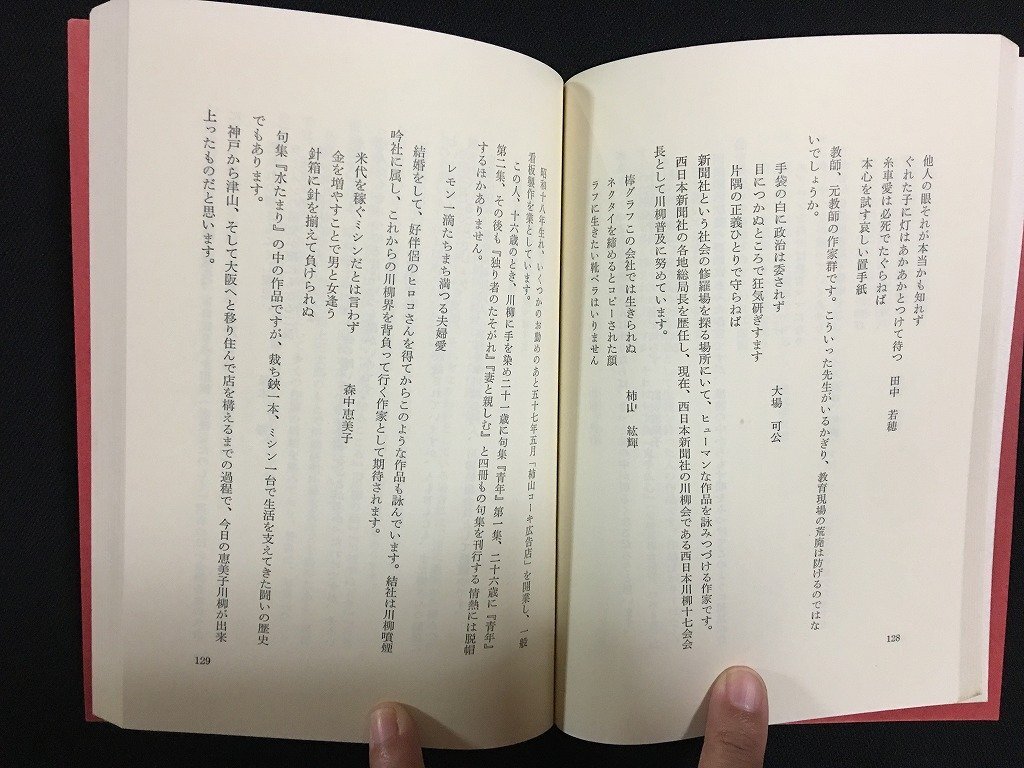 他人の眼それが本当かも知れず
ぐれた子に灯はあかあかとつけて待つ　田中　若穂
糸車愛は必死でたぐらねば
本心を試す哀しい置手紙
教師、元教師の作家群です。こういった先生がいるかぎり、教育現場の荒廃は防げるのではな
いでしょうか。
手袋の白に政治は委されず　大場　可公
目につかぬところで狂気研ぎすます
片隅の正義ひとりで守らねば
新聞社という社会の修羅場を探る場所にいて、ヒューマンな作品を詠みつづける作家です。
西日本新聞社の各地総局長を歴任し、現在、西日本新聞社の川柳会である西日本川柳十七会会
長として川柳普及に努めています。
棒グラフこの会社では生きられぬ　柿山　紘輝
ネクタイを締めるとコピーされた顔
ラフに生きたい靴ベラはいりません
128
昭和十八年生れ、いくつかのお勤めのあと五十七年五月「柿山コーキ広告店」を開業し、一般
看板製作を業としています。
この人、十六歳のとき、川柳に手を染め二十一歳に句集『青年』第一集、二十六歳に『青年』
第二集、その後も『独り者のたそがれ』『妻と親しむ』と四冊もの句集を刊行する情熱には脱帽
するほかありません。
レモン一滴たちまち満つる夫婦愛
結婚をして、好伴侶のヒロコさんを得てからこのような作品も詠んでいます。結社は川柳噴煙
吟社に属し、これからの川柳界を背負って行く作家として期待されます。
米代を稼ぐミシンだとは言わず　森中恵美子
金を増やすことで男と女逢う
針箱に針を揃えて負けられぬ
句集『水たまり』の中の作品ですが、裁ち鋏一本、ミシン一台で生活を支えてきた闘いの歴史
でもあります。
神戸から津山、そして大阪へと移り住んで店を構えるまでの過程で、今日の恵美子川柳が出来
上ったものだと思います。
129